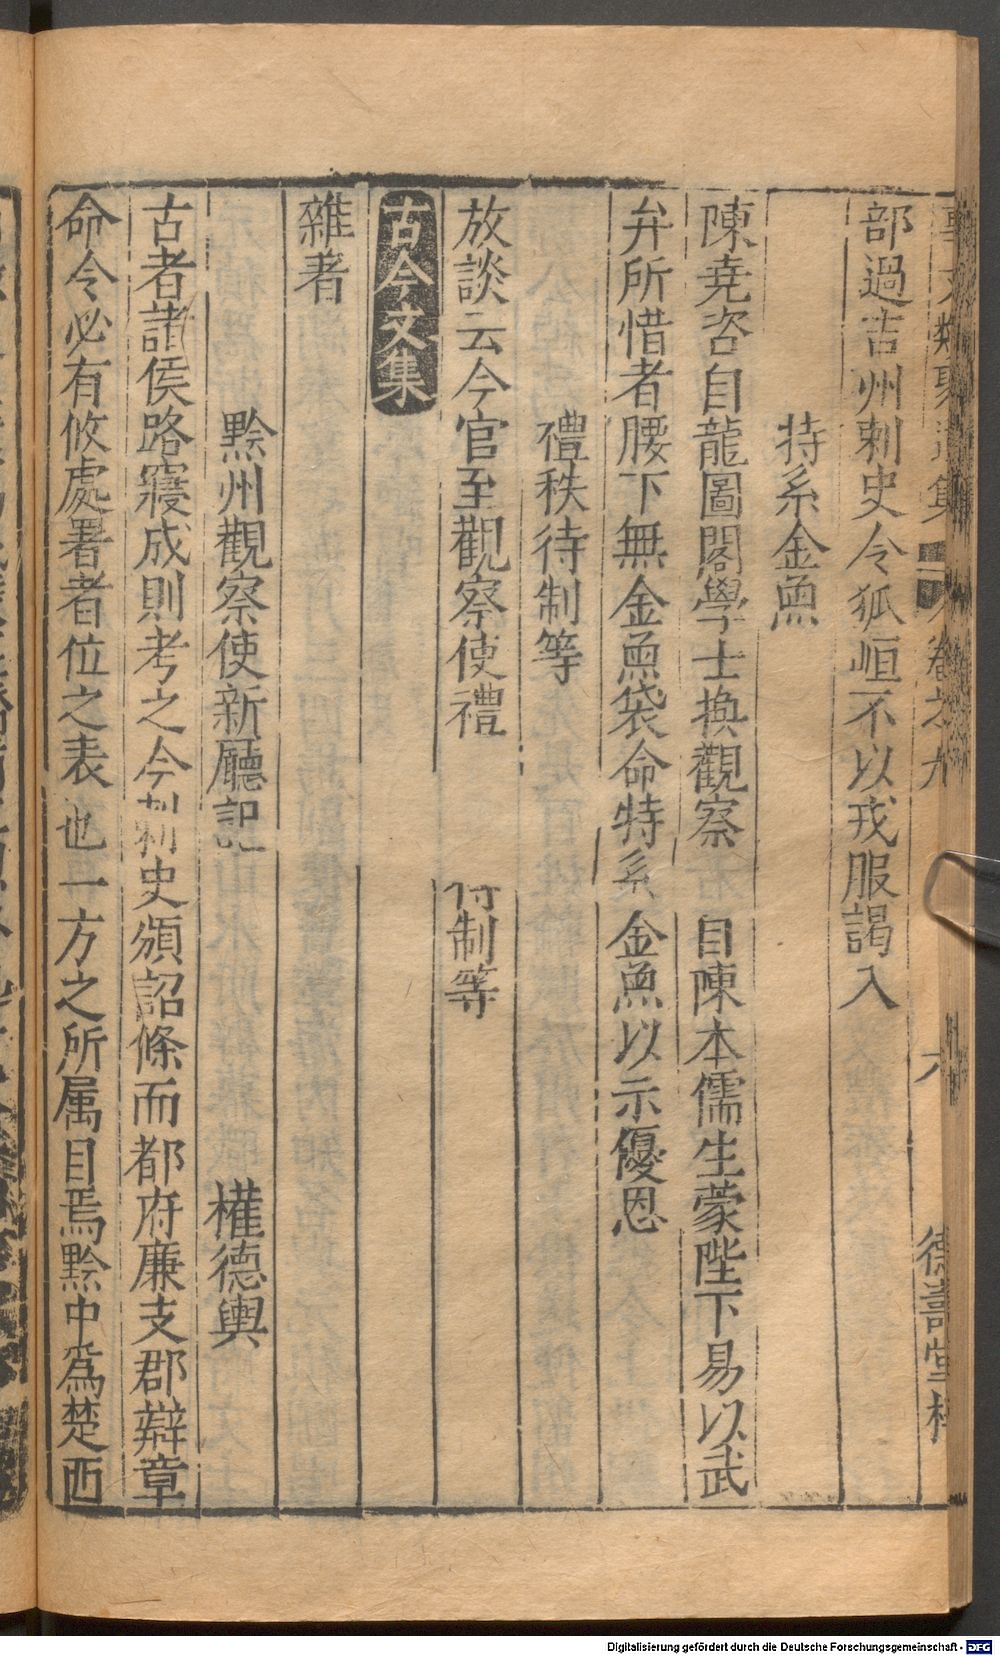 部過吉州刺史令狐峘不以戎服謁入
特系金魚
陳堯咨自龍圖閣學士換觀察 自陳本儒生蒙陛下易以武
弁所惜者腰下無金魚袋命特系 金魚以示優恩
禮秩待制等
放談云今官至觀察使禮 待制等
古今文集
雜著
黔州觀察使新廳記 權德輿
古者諸侯路寢成則考之今刺史頒詔條而都府廉支郡辯章
命令必有攸處署者位之表也一方之所属目焉黔中爲楚西
卷之九
六
德壽堂梓
Digitalisierung gefördert durch die Deutsche Forschungsgemeinschaft - DFG